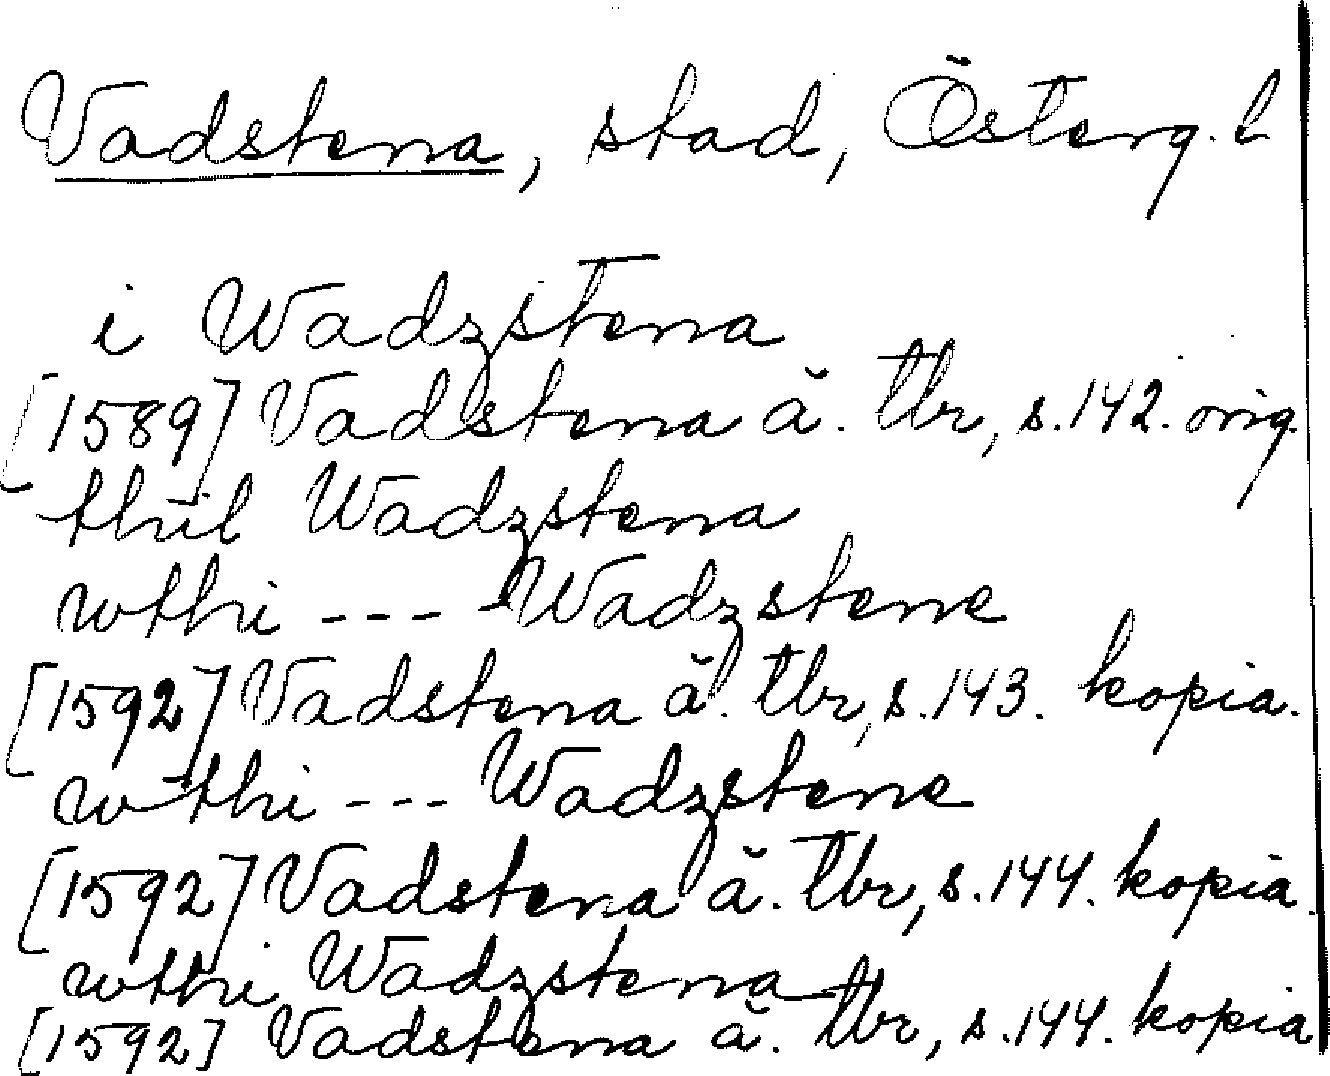 Vadstena, stad, Österg. l
i Wadzstena
[1589] Vadstena ä. tbr, s. 142. orig.
thil Wadzstena
wthi --- Wadzstene
[1592] Vadstena ä. tbr, s. 143. kopia.
wthi --- Wadzstene
[1592] Vadstena ä. tbr, s. 144. kopia
wthi Wadzstena
[1592] Vadstena ä. tbr, s. 144. kopia